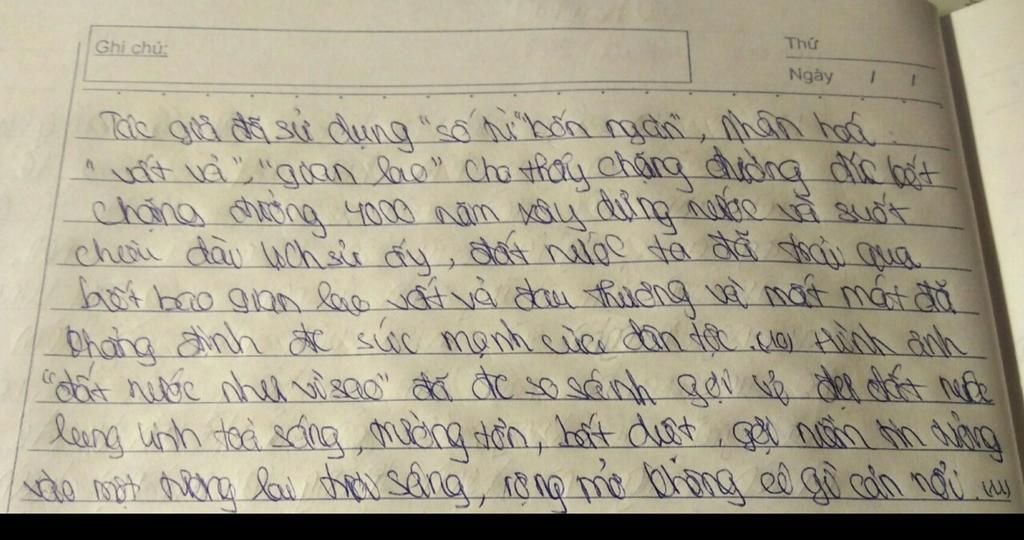 Ghi chú:
Thứ
Ngày / /
Tác giả đã sử dụng "số từ "bốn ngàn", nhân hoá
"vất vả", "gian lao" cho thấy chặng đường đc bắt
chặng đường 4000 năm xây dựng nước và suốt
chiều dài lịch sử ấy, đất nước ta đã trải qua
biết bao gian lao vất vả đau thương và mất mát đã
khẳng định đc sức mạnh của dân tộc. Hình ảnh
"đất nước như vì sao" đã đc so sánh gợi vẻ đẹp đất nước
lung linh toả sáng, trường tồn, bất diệt, gợi niềm tin
vào một tương lai tươi sáng, rộng mở không có gì cản nổi.